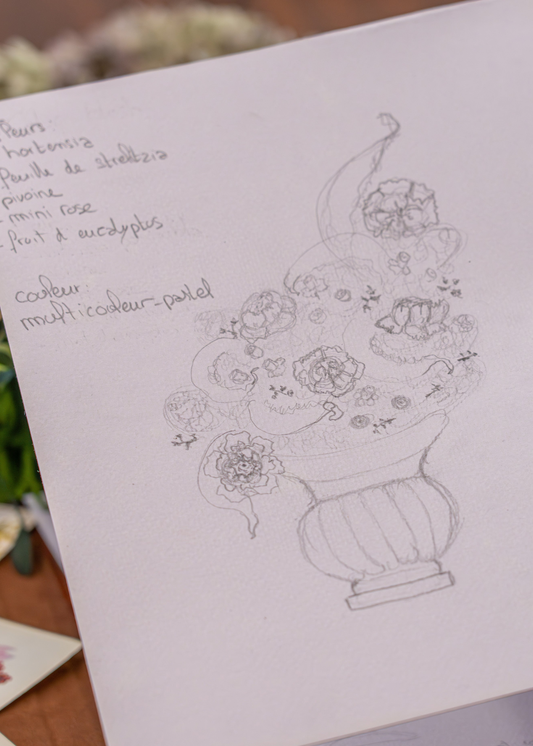 fleurs:
hortensia
feuille de strelitzia
pivoine
- mini rose
- fruit d eucalyptus
couleur:
multicouleur-pastel